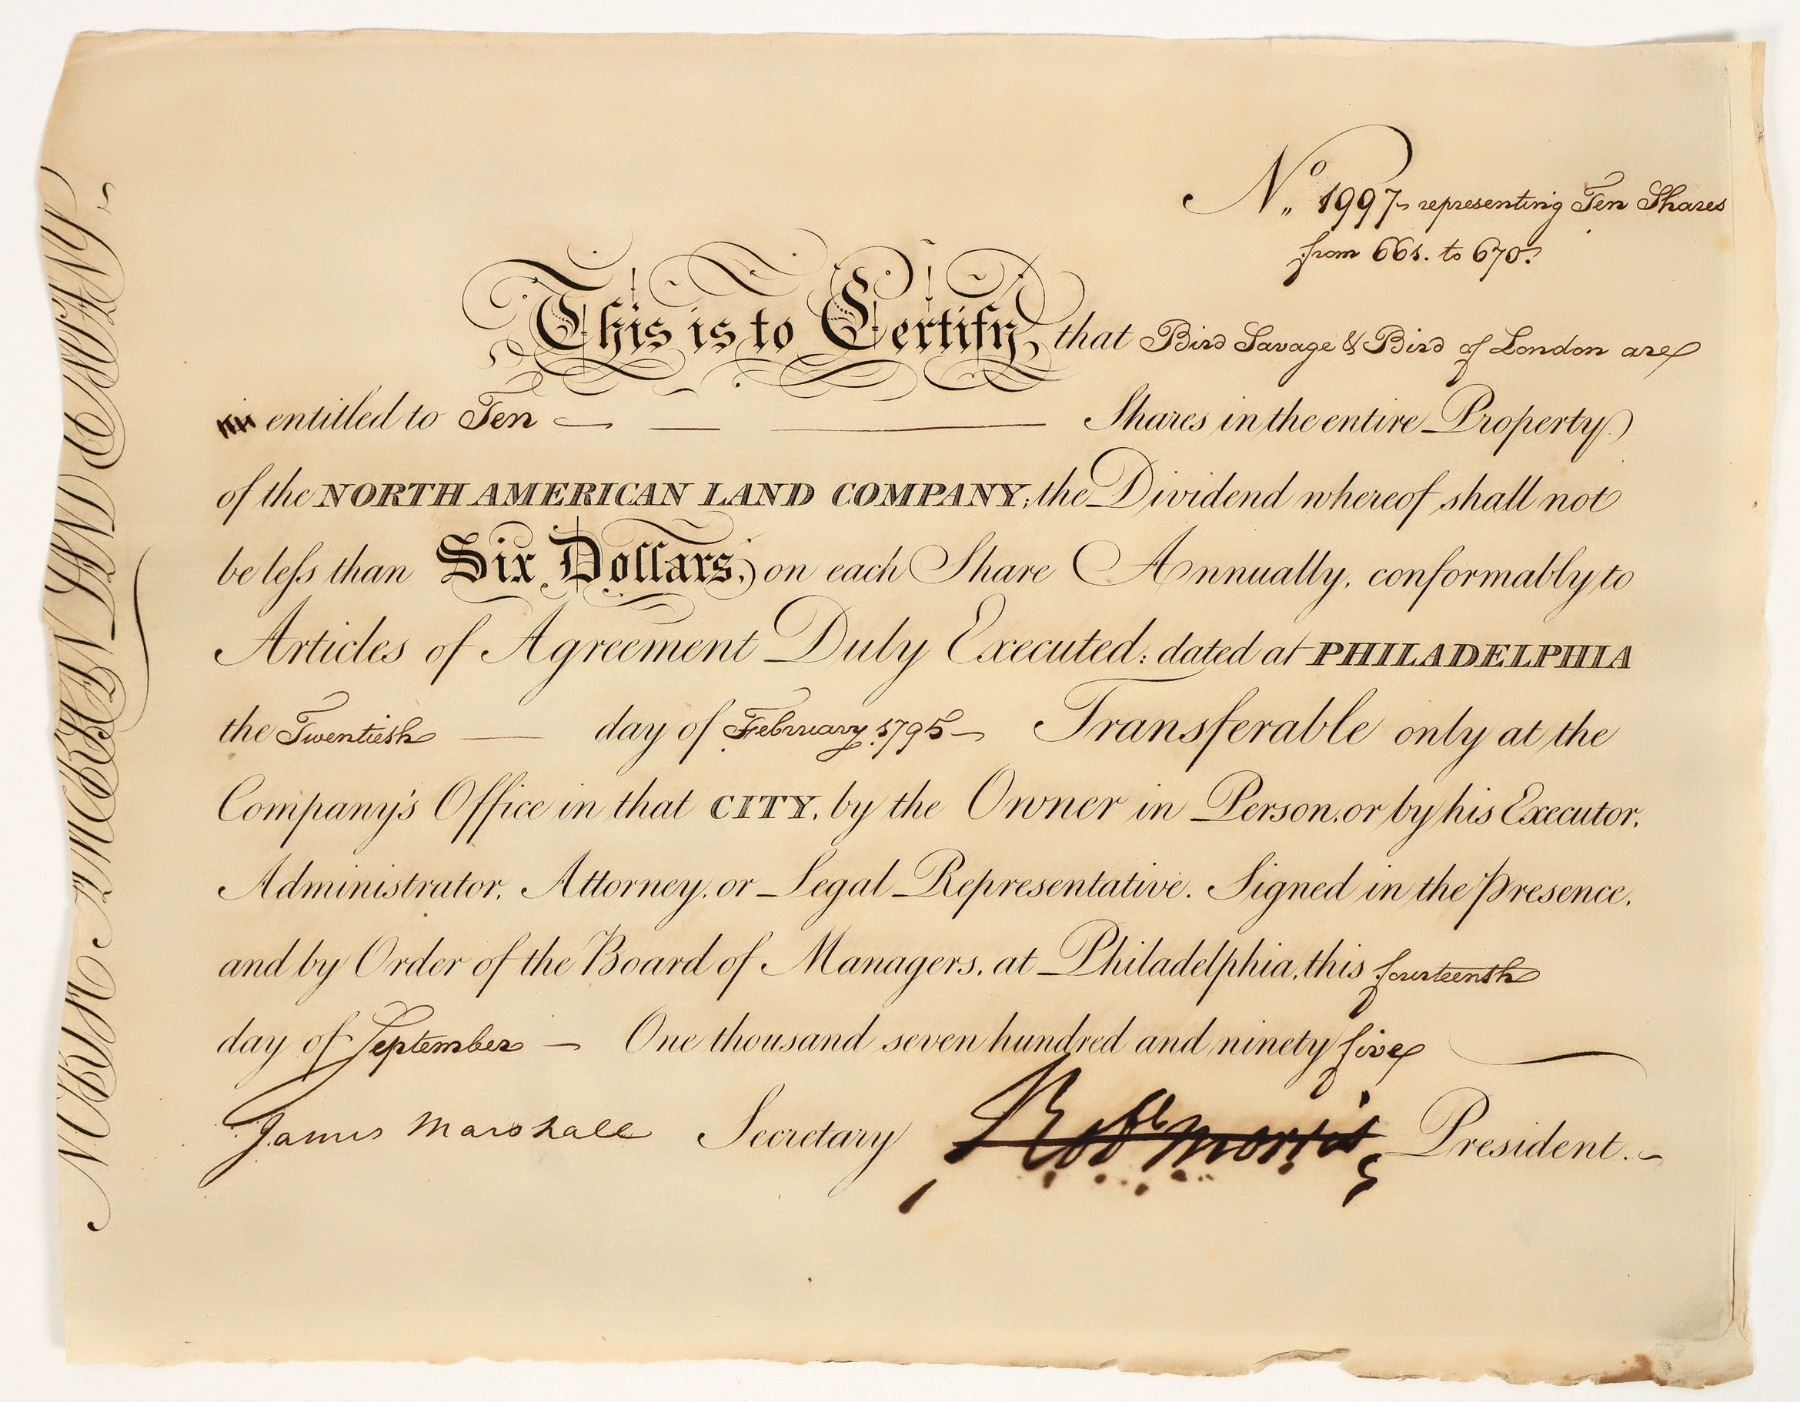 No. 1997 representing Ten Shares
from 661. to 670.
This is to Certify, that Bird Savage & Bird of London are
entitled to Ten Shares in the entire Property
of the NORTH AMERICAN LAND COMPANY; the Dividend whereof shall not
be less than Six Dollars, on each Share Annually, conformably to
Articles of Agreement Duly Executed: dated at PHILADELPHIA
the Twentieth day of February 1795 Transferable only at the
Company's Office in that CITY, by the Owner in Person, or by his Executor,
Administrator, Attorney, or Legal Representative. Signed in the Presence,
and by Order of the Board of Managers, at Philadelphia, this fourteenth
day of September One thousand seven hundred and ninety five
James Marshall Secretary Robt Morris President.
NORTH AMERICAN LAND COMPANY